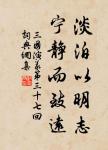 淡泊以明志
宁静而致远
三國演義第三十七回
詞典網集